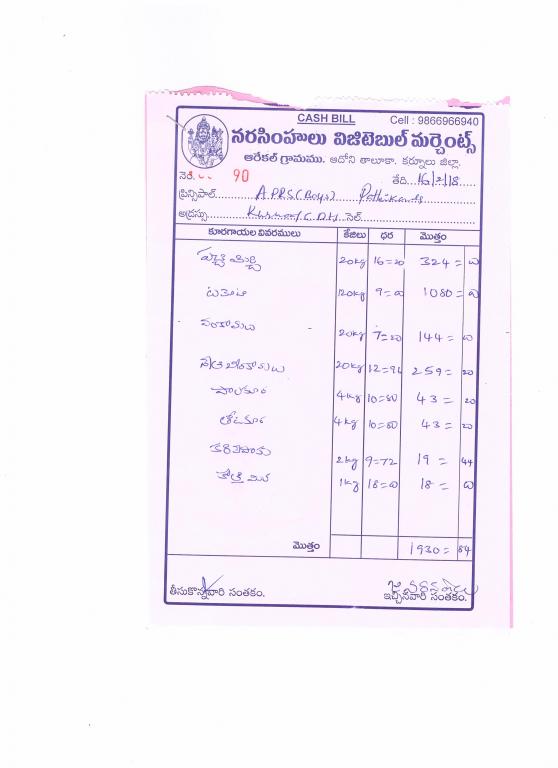 CASH BILL Cell : 9866966940
నరసింహులు విజిటెబుల్ మర్చెంట్స్
ఆరేకల్ గ్రామము. ఆదోని తాలూకా. కర్నూలు జిల్లా.
నెం. 90 తేది. 16/2/18
ప్రిన్సిపాల్ A.P.R.S (Boys)
అడ్రస్సు సెల్.
కూరగాయల వివరములు కేజీలు ధర మొత్తం
పచ్చి మిర్చి 20kg 16=20 324=
టమోటా 120kg 9= 1080=
వంకాయలు 20kg 7=20 144=
20kg 12=96 259=20
పాలకూర 4kg 10=80 43=20
తోటకూర 4kg 10=80 43=20
కరివేపాకు 2kg 9=72 19=44
కొత్తిమీర 1kg 18= 18=
మొత్తం 1930=84
తీసుకొన్నవారి సంతకం. ఇచ్చినవారి సంతకం.